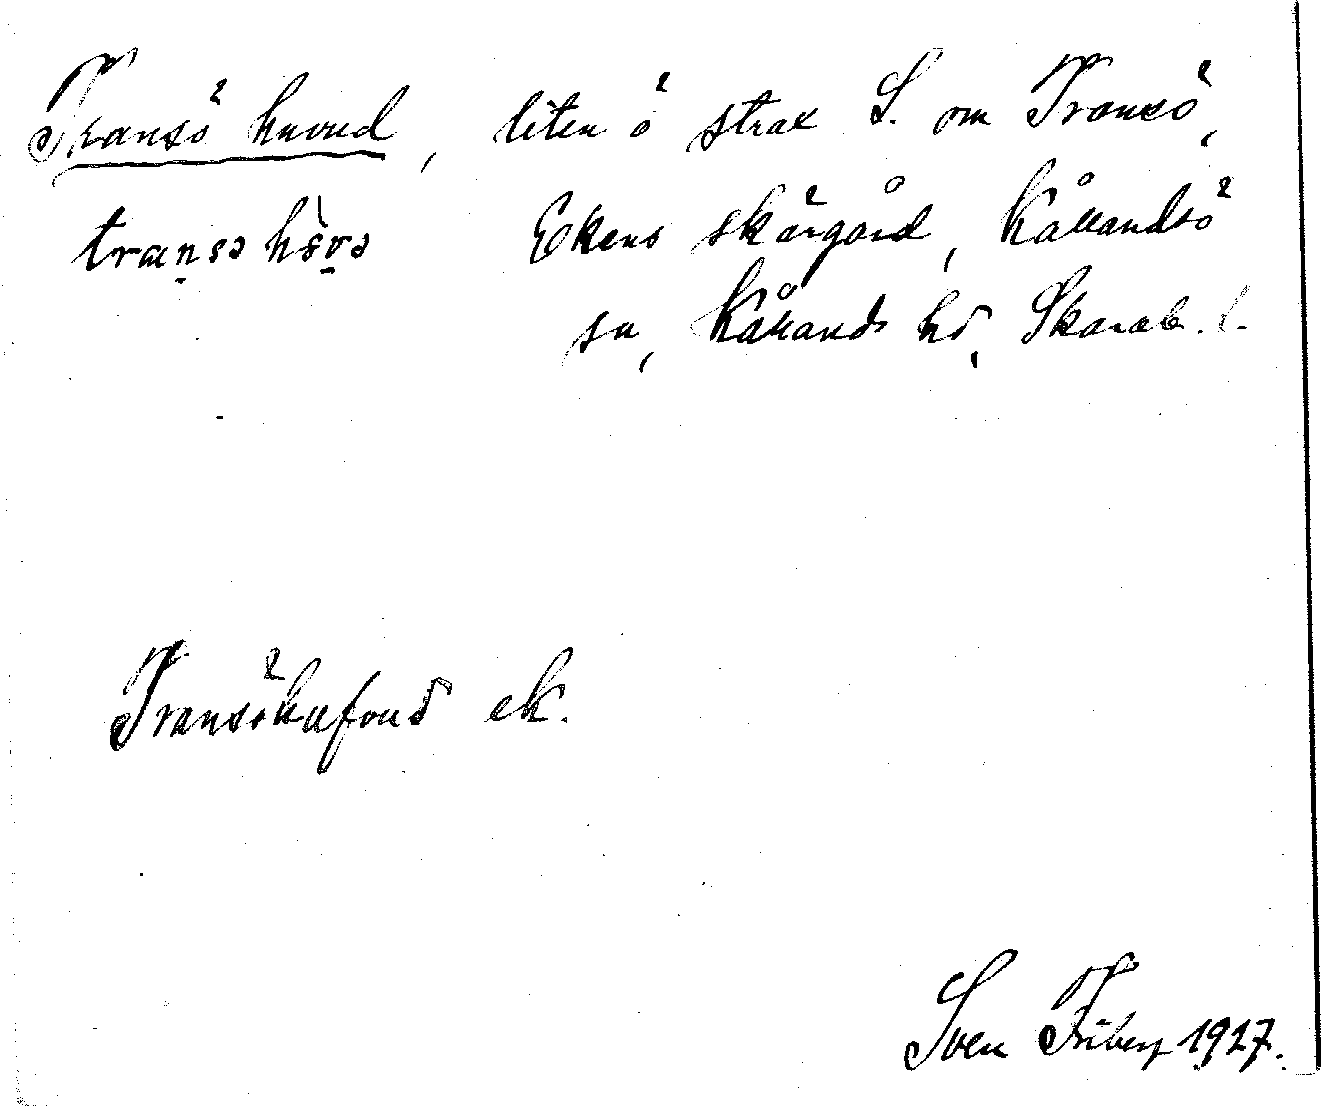 Transö huvud, liten ö strax S. om Transö,
Ekens skärgård, Kållandsö
sn, Kållands hd, Skarab. l.
Transöhufoud ek.
Sven Friberg 1927.